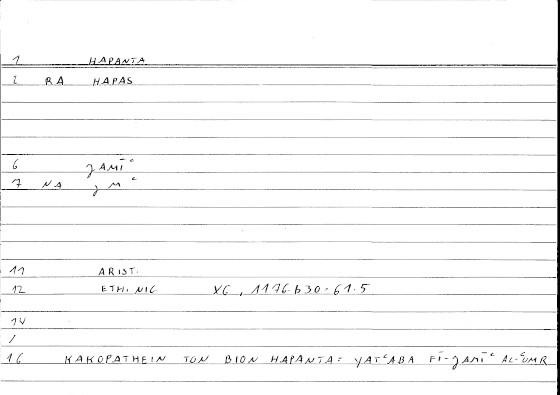 1 HAPANTA
2 RA HAPAS
6 ǧAMĪʿ
7 NA ǧMʿ
11 ARIST.
12 ETH. NIC X6, 1176 b30 = 61.5
14
/
16 KAKOPATHEIN TON BION HAPANTA = YATʿABA FĪ-ǧAMĪʿ AL-ʿUMR